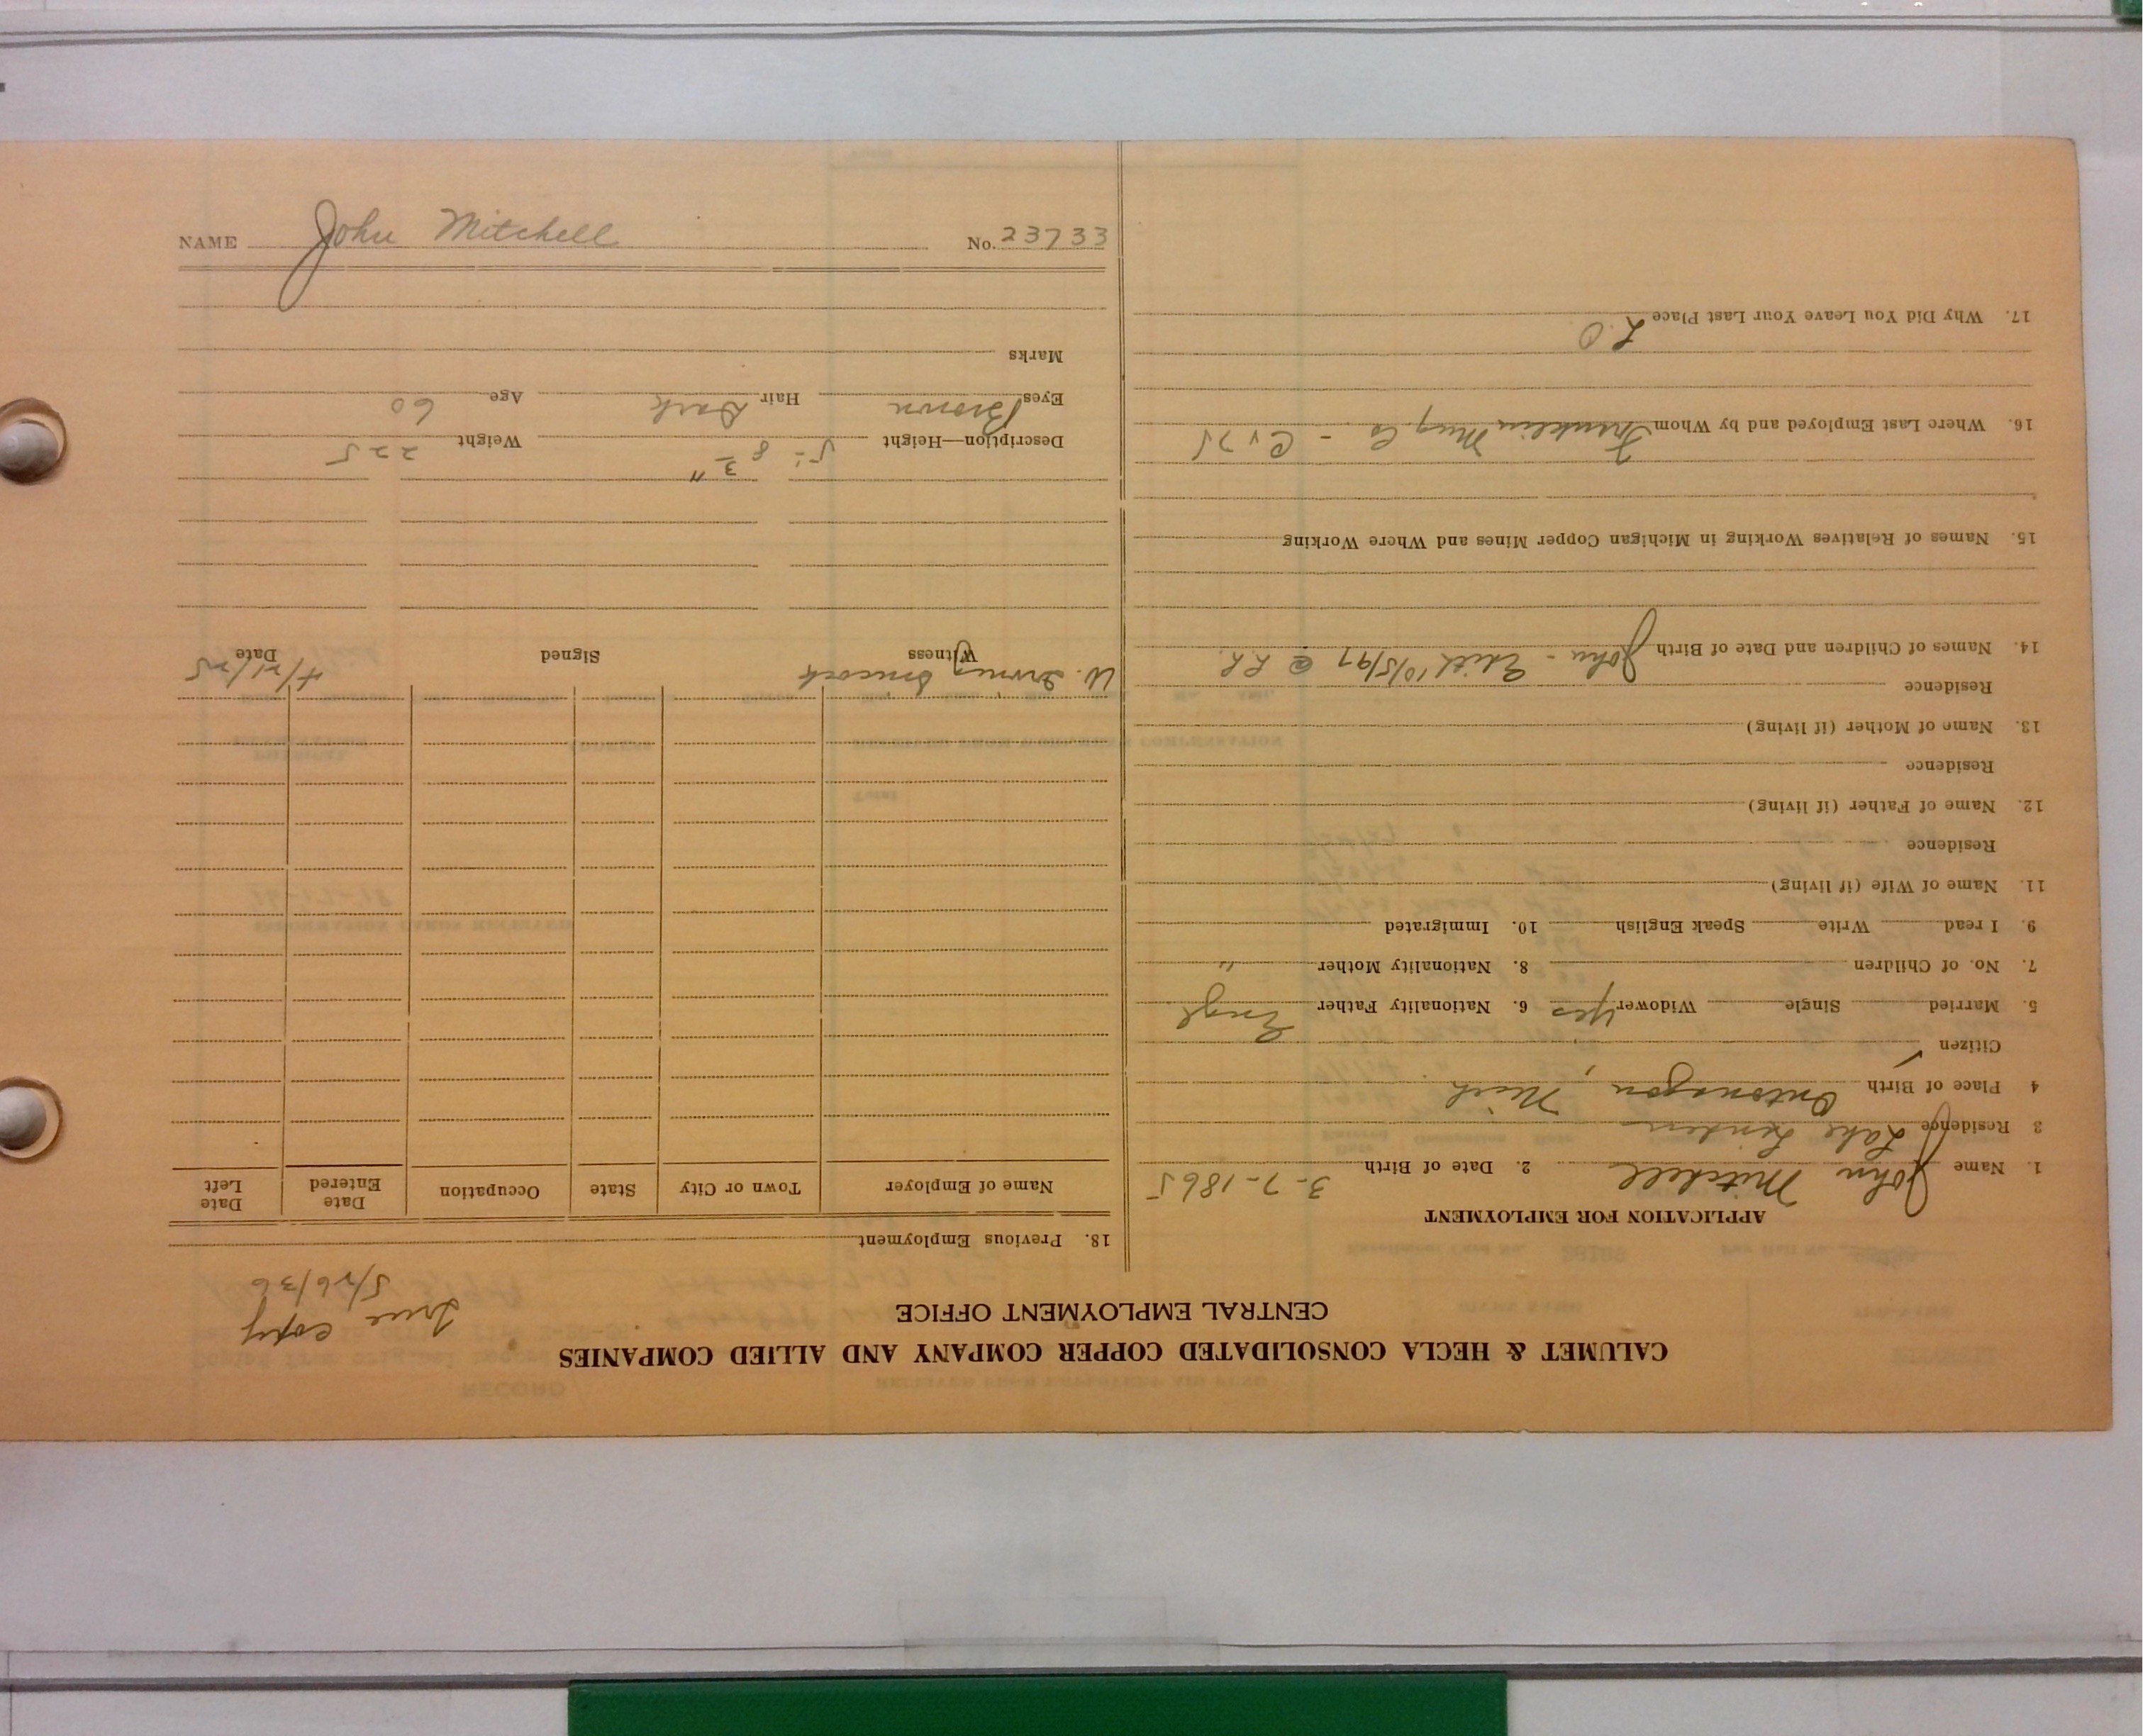 CALUMET & HECLA CONSOLIDATED COPPER COMPANY AND ALLIED COMPANIES
CENTRAL EMPLOYMENT OFFICE
True copy
5/26/36
APPLICATION FOR EMPLOYMENT
1. Name John Mitchell 2. Date of Birth 3-7-1865
3 Residence Lake Linden
4 Place of Birth Ontonagon, Mich
Citizen ✓
5. Married Single Widower yes 6. Nationality Father Engl
7. No. of Children 8. Nationality Mother "
9. I read Write Speak English 10. Immigrated
11. Name of Wife (if living)
Residence
12. Name of Father (if living)
Residence
13. Name of Mother (if living)
Residence
14. Names of Children and Date of Birth John - Edith 10/5/97 @ L.L.
15. Names of Relatives Working in Michigan Copper Mines and Where Working
16. Where Last Employed and by Whom Franklin Mng Co -
17. Why Did You Leave Your Last Place L.O
18. Previous Employment
Name of Employer Town or City State Occupation Date Entered Date Left
W. Irving Witness Signed Date 4/21/25
Description—Height 5' - 8 3/4" Weight 225
Eyes Brown Hair Dark Age 60
Marks
NAME John Mitchell No. 23733